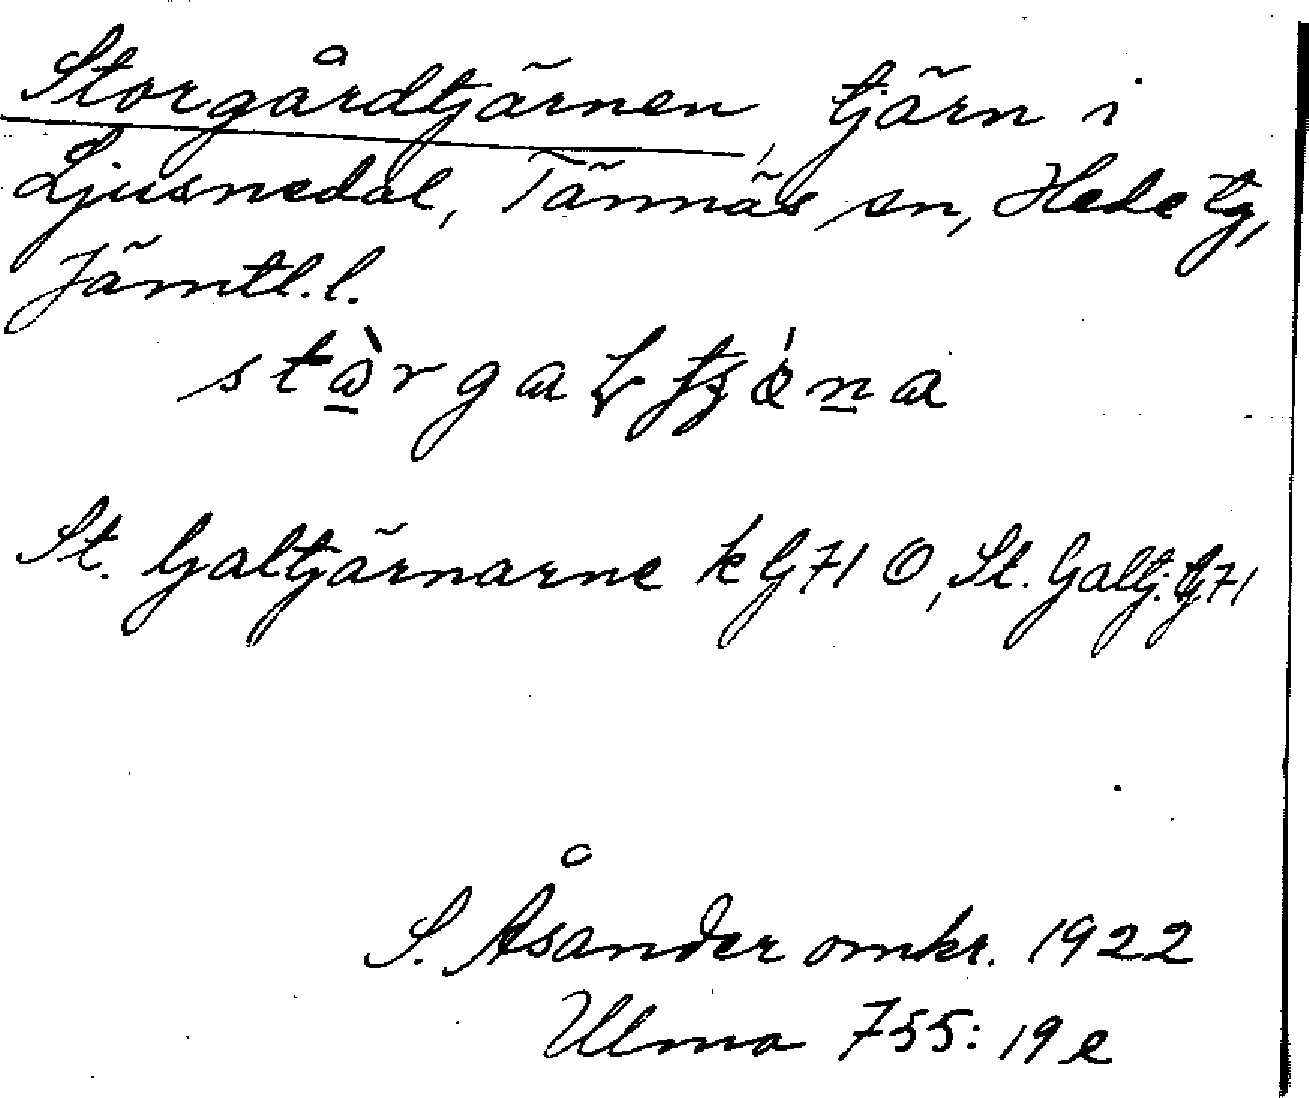 Storgårdtjärnen, tjärn i
Ljusnedal, Tännäs sn, Hede tg,
Jämtl.l.
St. Galtjärnarne k G 71 O, St. Galtj. G 71
S. Åsander omkr. 1922
Ulma 755: 19 e